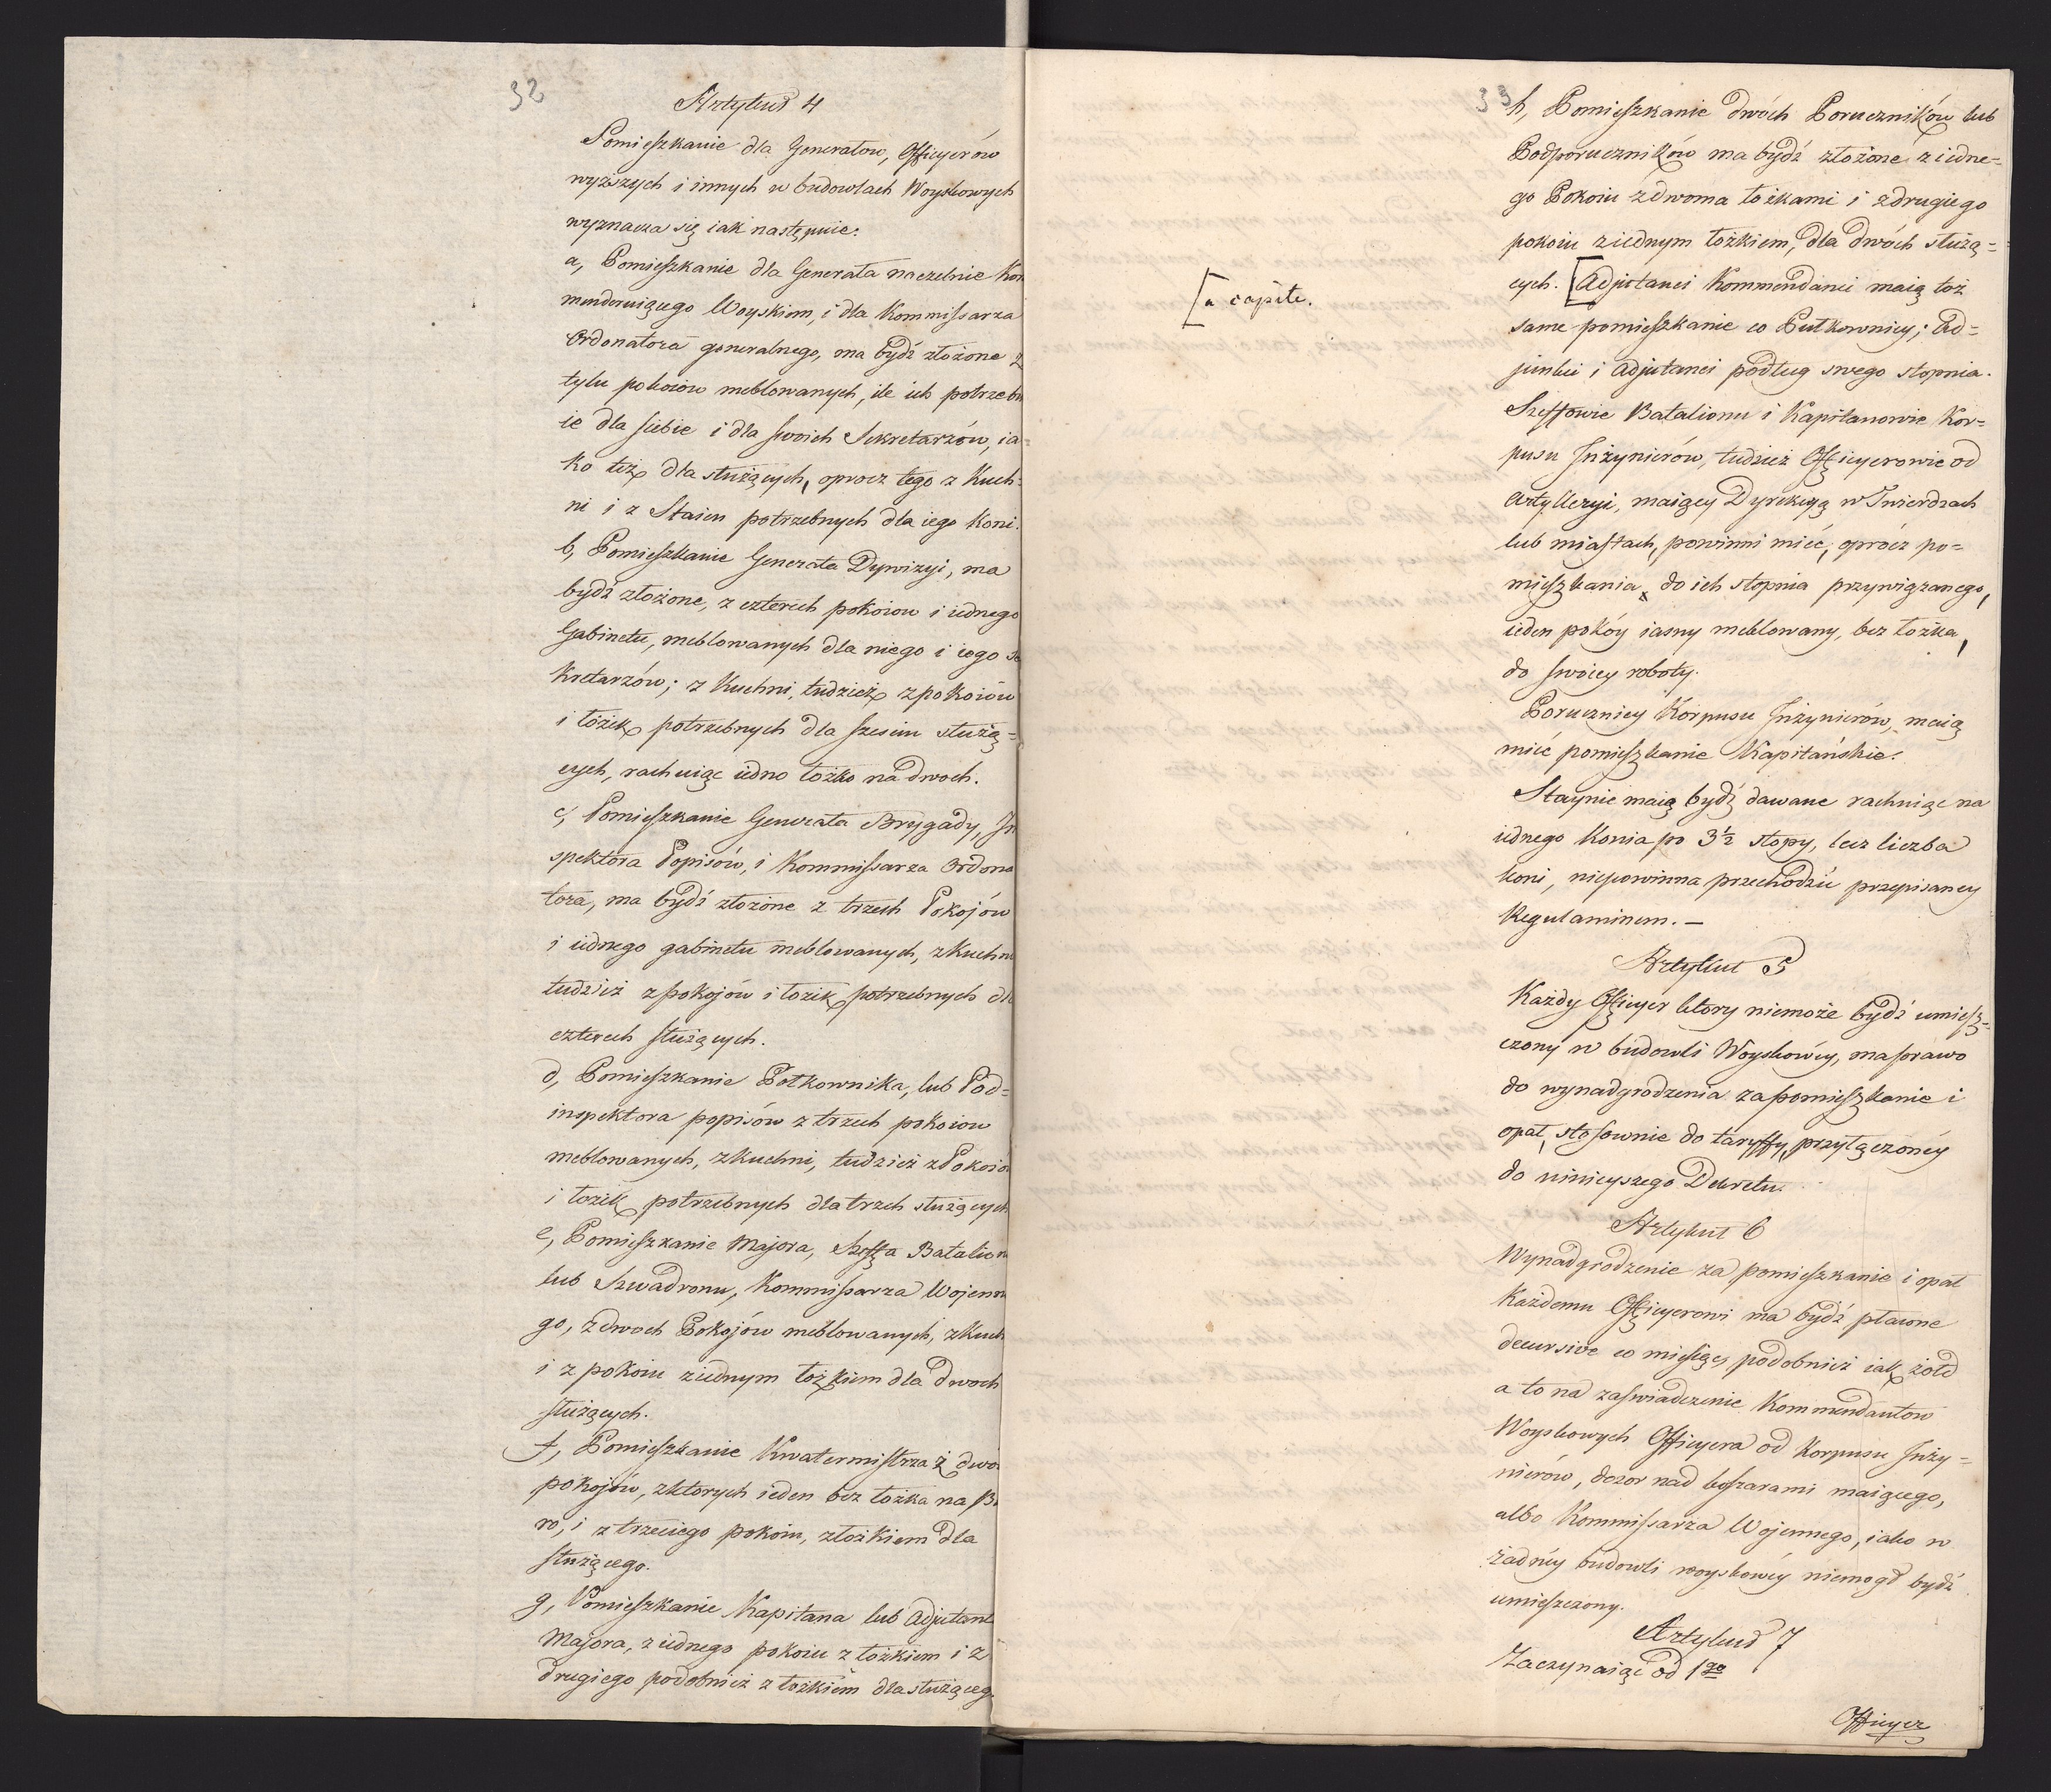 32
Artykuł 4
Pomieszkanie dla Generałow, Officyerów
wyższych i innych w budowlach Woyskowych
wyznacza się iak następuie:
a, Pomieszkanie dla Generała naczelnie Kom
menderuiącego Woyskiem, i dla Kommissarza
Ordonatora generalnego, ma bydź złożone z
tylu pokoiow meblowanych, ile ich potrzebu
ie dla siebie i dla swoich Sekretarzów, ia=
ko też dla służących, oprocz tego z Kuch=
ni i z Staien potrzebnych dla iego Koni.
b, Pomieszkanie Generała Dywizyi, ma
bydź złożone, z czterech pokoiow i iednego
Gabinetu, meblowanych dla niego i iego se
kretarzów; z Kuchni, tudzież z pokoiów
i łóżek potrzebnych dla sześciu służą=
cych, rachuiąc iedno łóżko na dwoch.
c, Pomieszkanie Generała Brygady, In
spektora Popisów, i Kommissarza Ordona
tora, ma bydź złożone z trzech Pokojów
i iednego gabinetu meblowanych, z Kuchni
tudzież z pokojów i łożek potrzebnych dla
czterech służących.
d, Pomieszkanie Półkownika, lub Pod=
inspektora popisów z trzech pokoiow
meblowanych, z kuchni, tudzież z Pokoiów
i łożek potrzebnych dla trzech służących
e, Pomieszkanie Majora, Szeffa Batalionu
lub Szwadronu, Kommissarza Wojenne
go, z dwoch Pokojów meblowanych, z Kuch
i z pokoiu z iednym łożkiem dla dwoch
służących.
f, Pomieszkanie Kwatermistrza z dwó
pokojów, z ktorych ieden bez łożka na Bi
ro, i z trzeciego pokoiu, z łożkiem dla
służącego.
g, Pomieszkanie Kapitana lub Adjutant
Majora, z iednego pokoiu z łożkiem i z
drugiego podobnież z łożkiem dla służąceg
33
h, Pomieszkanie dwóch Poruczników lub
Podporuczników ma bydź złożone z iedne=
go Pokoiu z dwoma łożkami i z drugiego
pokoiu z iednym łożkiem, dla dwóch służą=
[a capite.
cych. [Adjutanci Kommendanci maią toż
same pomieszkanie co Pułkownicy; Ad=
junkci i Adjutanci podług swego stopnia.
Szeffowie Batalionu i Kapitanowie Kor=
pusu Inżynierów, tudzież Officyerowie od
Artylleryi, maiący Dyrekcyą w Twierdzach
lub miastach, powinni mieć, oprócz po=
mieszkania do ich stopnia przywiązanego,
ieden pokóy iasny meblowany, bez łożka,
do swoiey roboty.
Porucznicy Korpusu Inżynierów, maią
mieć pomieszkanie Kapitańskie.
Staynie maią bydź dawane rachuiąc na
iednego Konia po 3½ stopy, lecz liczba
koni, niepowinna przechodzić przepisaney
Regulaminem. —
Artykuł 5
Każdy Officyer ktory niemoże bydź umiesz=
czony w budowli Woyskowey, ma prawo
do wynadgrodzenia za pomieszkanie i
opał, stosownie do taryffy, przyłączonéy
do ninieyszego Dekretu.
Artykuł 6
Wynadgrodzenie za pomieszkanie i opał
Każdemu Officyerowi ma bydź płacone
decursive co miesiąc podobnież iak żołd
a to na zaswiadczenie Kommendantow
Woyskowych Officyera od Korpusu Inży=
nierów, dozor nad koszarami maiącego,
albo Kommissarza Wojennego, iako w
żadnéy budowli woyskowéy niemogł bydź
umieszczony.
Artykuł 7
Zaczynaiąc od 1go
Officyer